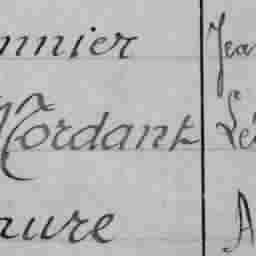 nnier Jea
Mordant Lé
aure A